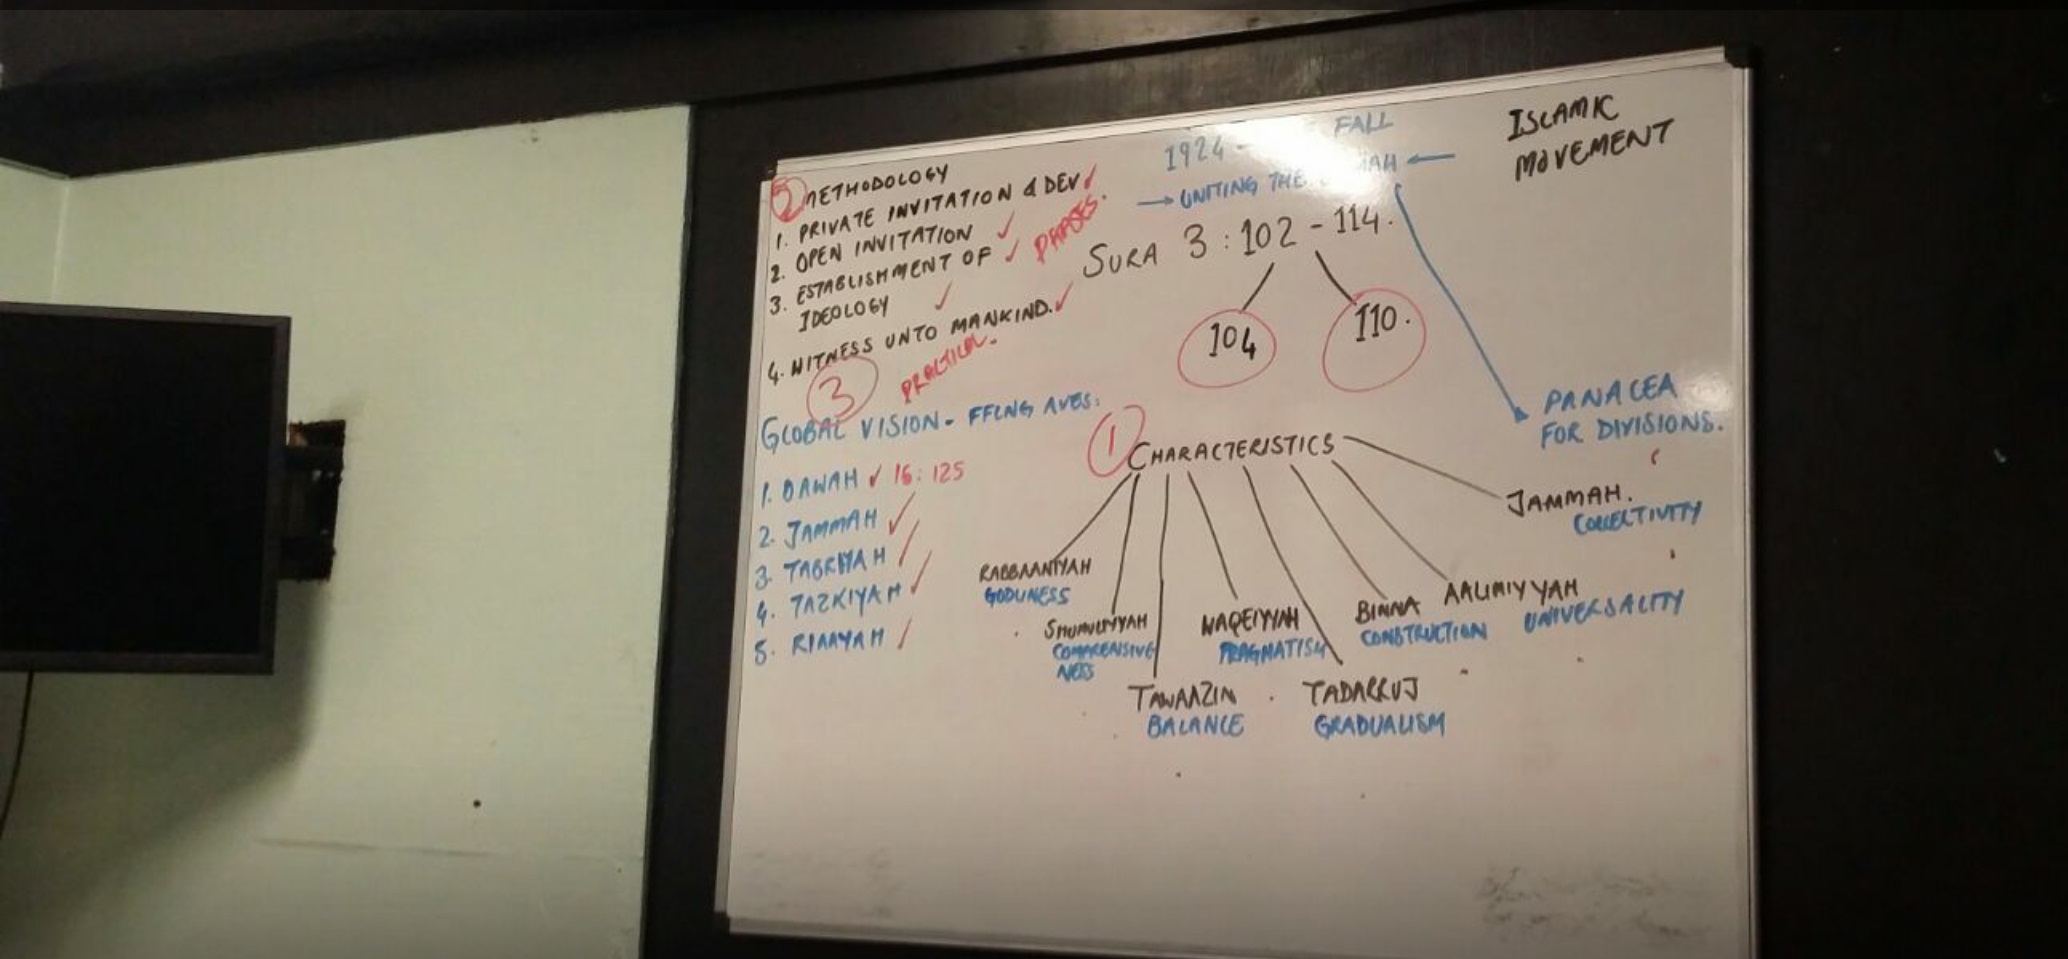 ② METHODOLOGY
1. PRIVATE INVITATION & DEV ✓
2. OPEN INVITATION ✓
3. ESTABLISHMENT OF ✓
IDEOLOGY ✓
PHASES.
4. WITNESS UNTO MANKIND. ✓
PRACTICAL.
③
GLOBAL VISION - FFLNG AVES:
1. DAWAH ✓ 16:125
2. JAMMAH ✓
3. TABRIYAH ✓
4. TAZKIYAH ✓
5. RIAAYAH ✓
ISLAMIC
MOVEMENT
1924 - FALL
→ UNITING THE ←
SURA 3:102 - 114.
104
110.
PANACEA
FOR DIVISIONS.
① CHARACTERISTICS
RABBAANIYAH
GODLINESS
SHUMULIYYAH
COMPRENSIVE
NESS
TAWAAZIN
BALANCE
WAQEIYYAH
PRAGMATISM
TADARRUJ
GRADUALISM
BINNA
CONSTRUCTION
AALIMIYYAH
UNIVERSALITY
JAMMAH.
COLLECTIVITY